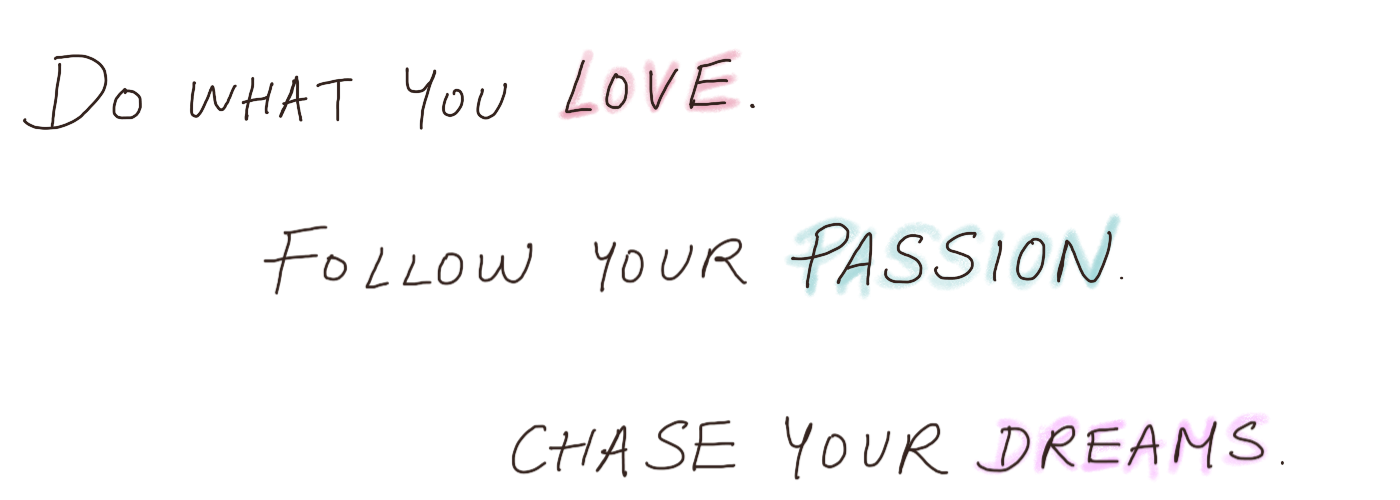 DO WHAT YOU LOVE.
FOLLOW YOUR PASSION.
CHASE YOUR DREAMS.